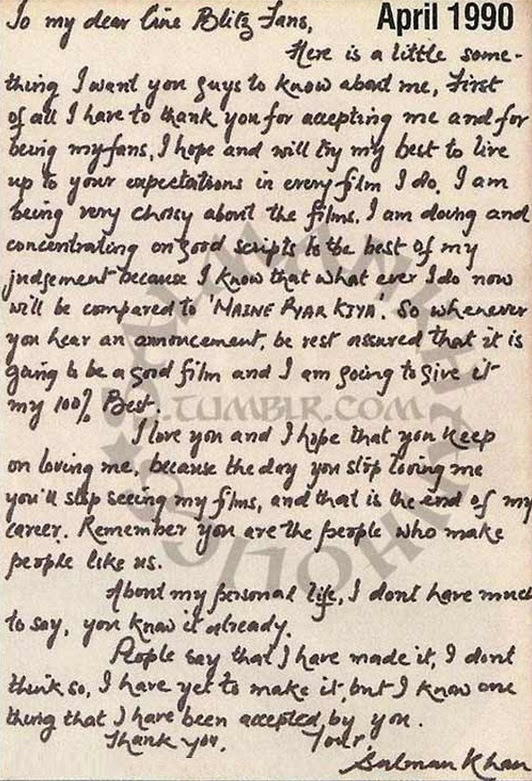 April 1990
To my dear Cine Blitz Fans,
Here is a little some-
thing I want you guys to know about me, First
of all I have to thank you for accepting me and for
being my fans, I hope and will try my best to live
up to your expectations in every film I do. I am
being very choisy about the films. I am doing and
concentrating on good scripts to the best of my
judgement because I know that what ever I do now
will be compared to 'MAINE PYAR KIYA'. So whenever
you hear an annoncement, be rest assured that it is
going to be a good film and I am going to give it
my 100% Best.
I love you and I hope that you keep
on loving me, because the day you stop loving me
you'll stop seeing my films, and that is the end of my
career. Remember you are the people who make
people like us.
About my personal life, I dont have much
to say, you know it already.
People say that I have made it, I dont
think so, I have yet to make it, but I know one
thing that I have been accepted by you.
Thank you. Your
Salman Khan
.TUMBLR.COM